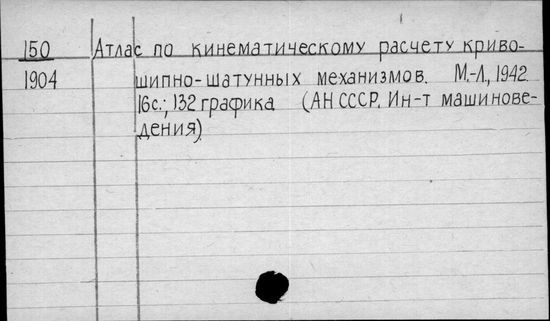 150 Атлас по кинематическому расчету криво-
1904 шипно-шатунных механизмов. М.-Л., 1942
16с.; 132 графика (АН СССР. Ин-т машинове-
дения)